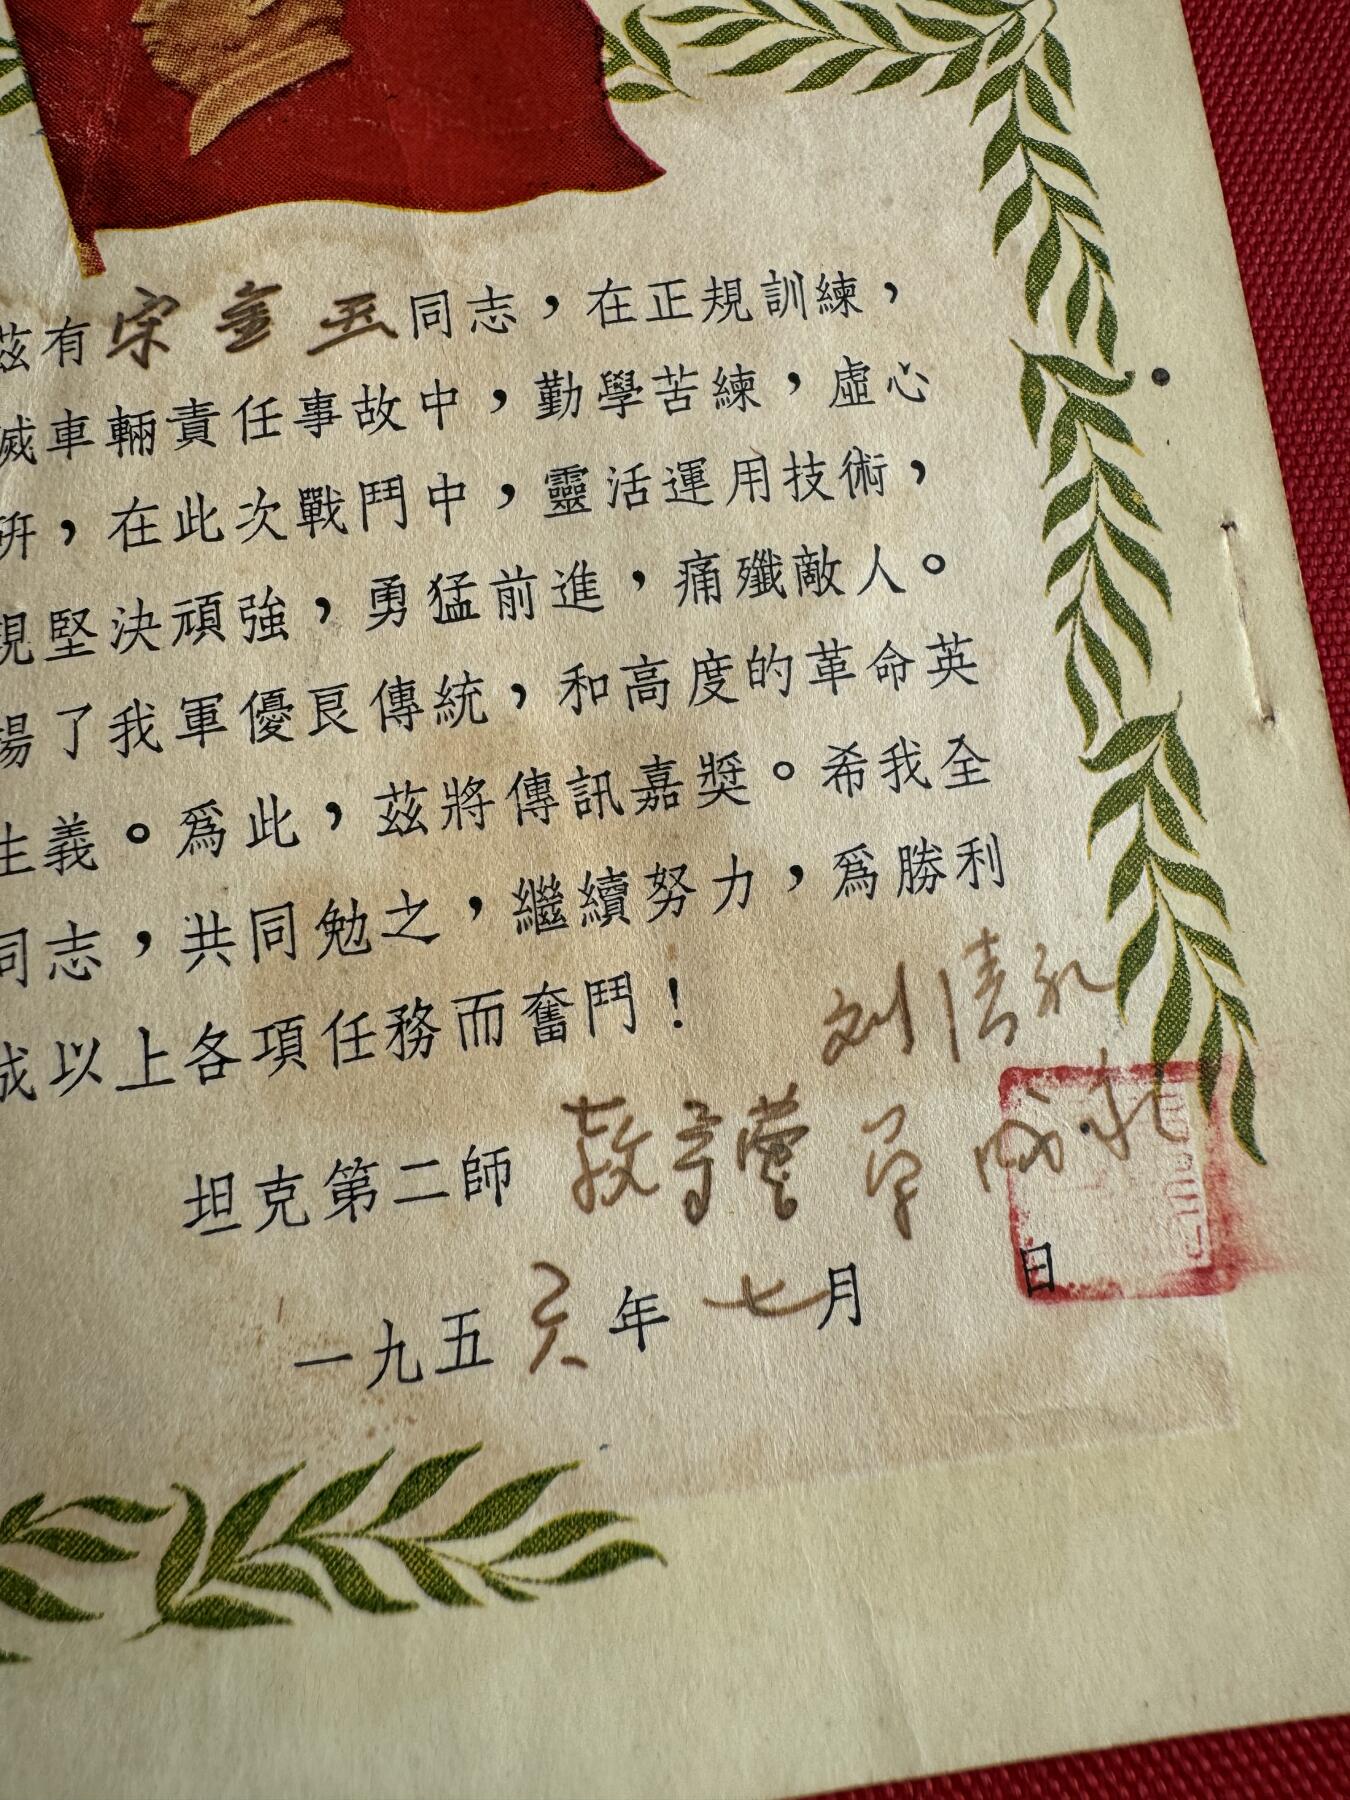 茲有宗金玉同志，在正規訓練，
滅車輛責任事故中，勤學苦練，虛心
研，在此次戰鬥中，靈活運用技術，
現堅決頑強，勇猛前進，痛殲敵人。
揚了我軍優良傳統，和高度的革命英
主義。爲此，茲將傳訊嘉獎。希我全
同志，共同勉之，繼續努力，爲勝利
成以上各項任務而奮鬥！
坦克第二師
一九五六年七月 日